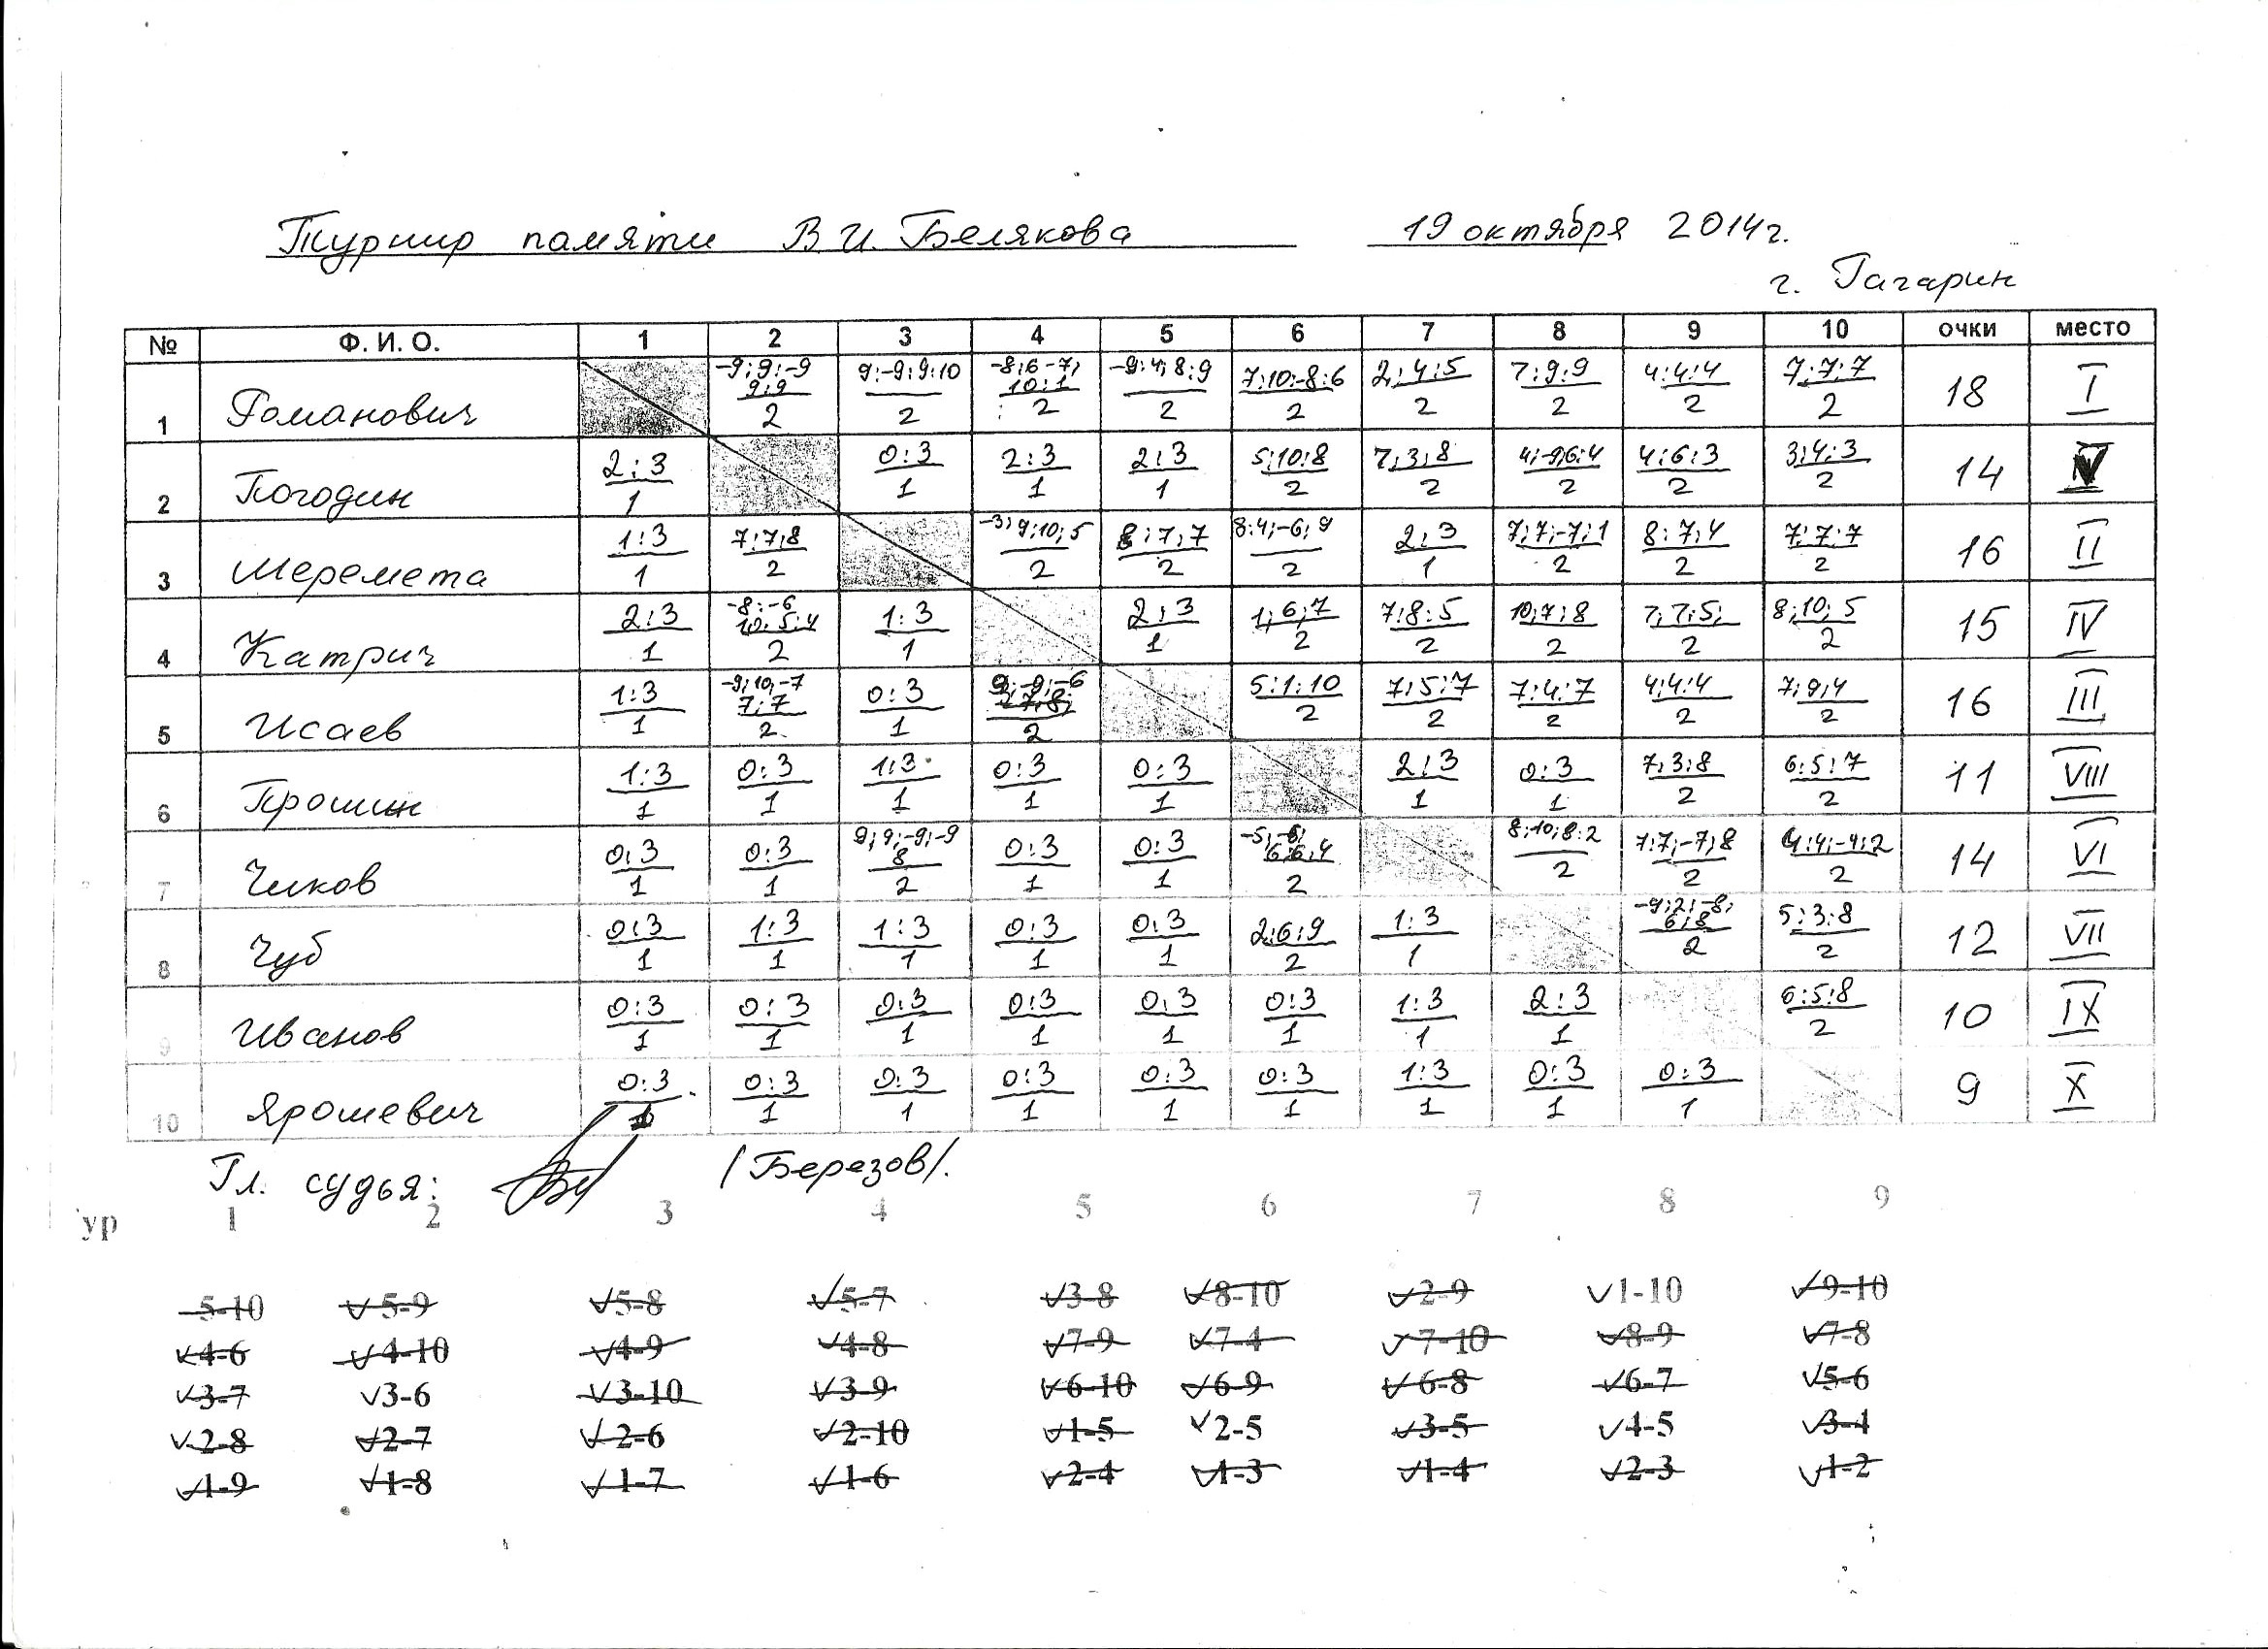 Турнир памяти В.И. Белякова 19 октября 2014г.
г. Гагарин
№ Ф. И. О. 1 2 3 4 5 6 7 8 9 10 очки место
1 Романович -9;9;-9 9;9 2 9;-9;9;10 2 -8;6-7; 10;1 2 -9;4;8;9 2 7;10;-8;6 2 2;4;5 2 7;9;9 2 4;4;4 2 7;7;7 2 18 I
2 Погодин 2:3 1 0:3 1 2:3 1 2:3 1 5;10;8 2 7;3;8 2 4;-9;6;4 2 4;6;3 2 3;4;3 2 14 V
3 Меремета 1:3 1 7;7;8 2 -3;9;10;5 2 8;7;7 2 8;4;-6;9 2 2:3 1 7;7;-7;1 2 8;7;4 2 7;7;7 2 16 II
4 Катрич 2:3 1 -8;-6 10;5;4 2 1:3 1 2:3 1 1;6;7 2 7;8;5 2 10;7;8 2 7;7;5; 2 8;10;5 2 15 IV
5 Исаев 1:3 1 -9;10;-7 7;7 2 0:3 1 9;-9;-6 2 5;1;10 2 7;5;7 2 7;4;7 2 4;4;4 2 7;9;4 2 16 III
6 Прошин 1:3 1 0:3 1 1:3 1 0:3 1 0:3 1 2:3 1 0:3 1 7;3;8 2 6;5;7 2 11 VIII
7 Чиков 0:3 1 0:3 1 9;9;-9;-9 8 2 0:3 1 0:3 1 -5;-6; 6;6;4 2 8;10;8;2 2 7;7;-7;8 2 4;4;-4;2 2 14 VI
8 Чуб 0:3 1 1:3 1 1:3 1 0:3 1 0:3 1 2;6;9 2 1:3 1 -9;2;-8; 6;8 2 5;3;8 2 12 VII
9 Иванов 0:3 1 0:3 1 0:3 1 0:3 1 0:3 1 0:3 1 1:3 1 2:3 1 6;5;8 2 10 IX
10 Ярошевич 0:3 1 0:3 1 0:3 1 0:3 1 0:3 1 0:3 1 1:3 1 0:3 1 0:3 1 9 X
Гл. судья: /Березов/.
ур 1 2 3 4 5 6 7 8 9
5-10 5-9 5-8 5-7 3-8 8-10 2-9 1-10 9-10
4-6 4-10 4-9 4-8 7-9 7-4 7-10 8-9 7-8
3-7 3-6 3-10 3-9 6-10 6-9 6-8 6-7 5-6
2-8 2-7 2-6 2-10 1-5 2-5 3-5 4-5 3-4
1-9 1-8 1-7 1-6 2-4 1-3 1-4 2-3 1-2